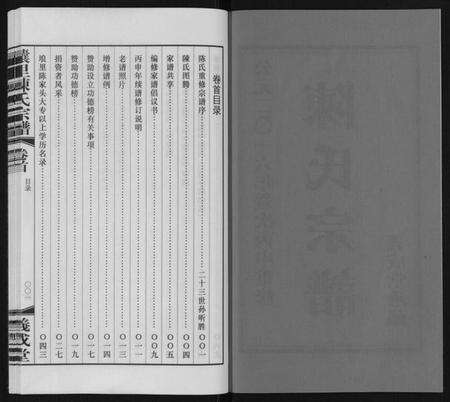 卷首目录
陈氏重修宗谱序……二十三世孙听胜 〇〇一
陈氏图腾……〇〇四
家谱共享……〇〇五
编修家谱倡议书……〇〇九
丙申年续谱修订说明……〇一一
老谱照片……〇一三
增修谱例……〇一四
赞助设立功德榜有关事项……〇一七
赞助功德榜……〇一九
捐资者风采……〇二七
埌里陈家头大专以上学历名录……〇四三
陈氏宗谱
卷首
目录
義成堂
陳氏宗譜